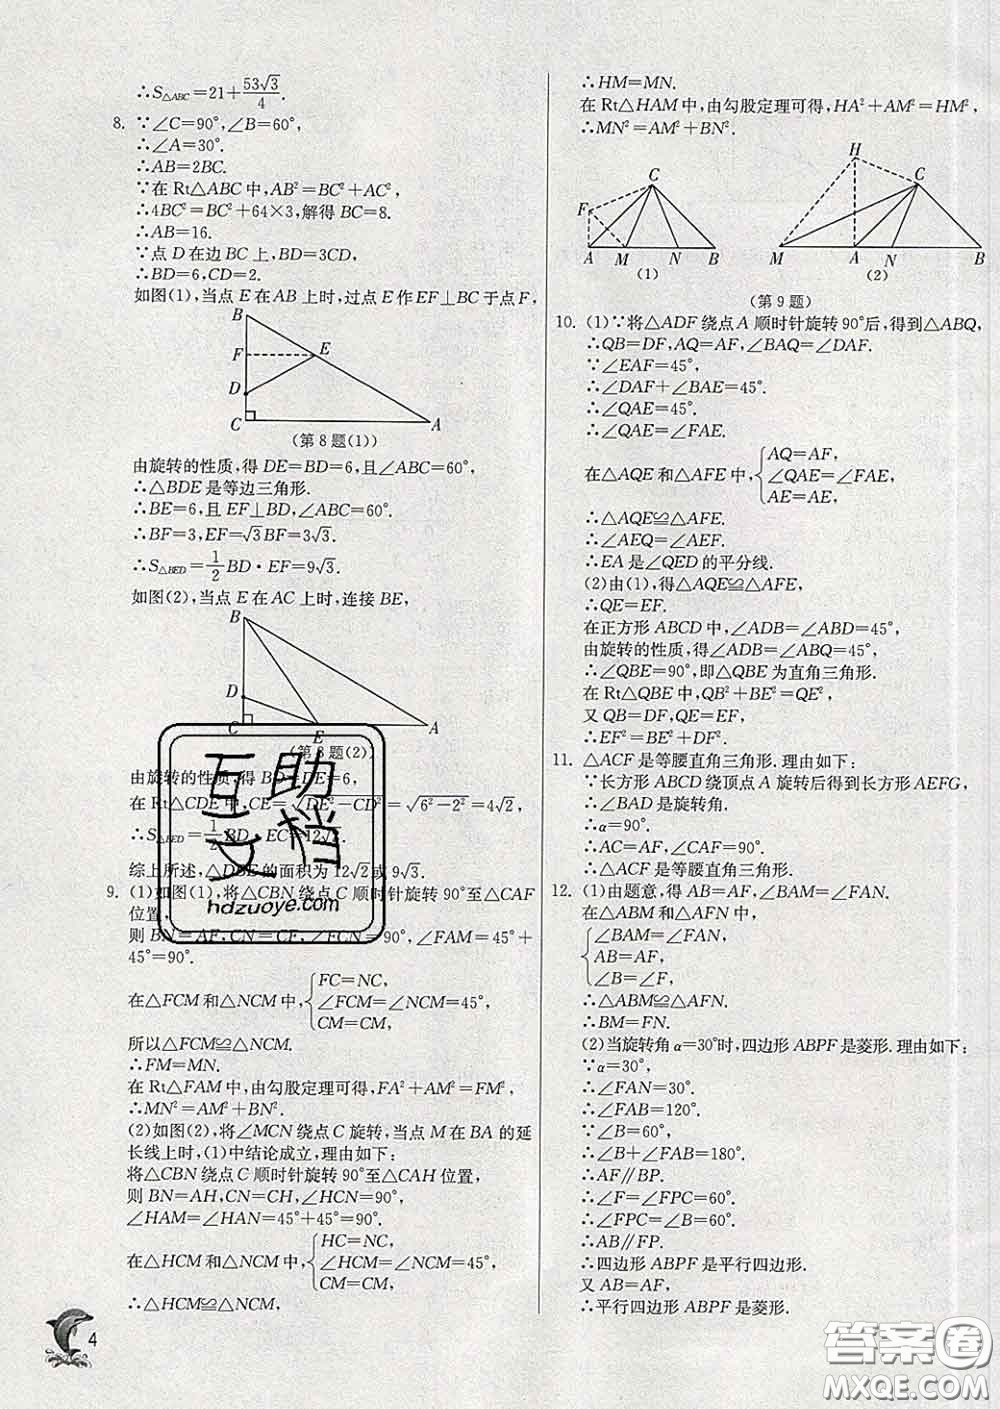 ∴S△ABC=21+53√3/4.
8. ∵∠C=90°,∠B=60°,
∴∠A=30°.
∴AB=2BC.
∵在 Rt△ABC 中,AB²=BC²+AC²,
∴4BC²=BC²+64×3,解得 BC=8.
∴AB=16.
∵点 D 在边 BC 上,BD=3CD,
∴BD=6,CD=2.
如图(1),当点 E 在 AB 上时,过点 E 作 EF⊥BC 于点 F,
B
F
E
D
C
A
(第 8 题(1))
由旋转的性质,得 DE=BD=6,且∠ABC=60°,
∴△BDE 是等边三角形.
∴BE=6,且 EF⊥BD,∠ABC=60°.
∴BF=3,EF=√3BF=3√3.
∴S△BED=1/2BD·EF=9√3.
如图(2),当点 E 在 AC 上时,连接 BE,
B
D
C
E
A
(第 8 题(2))
由旋转的性质,得 BD=DE=6,
在 Rt△CDE 中,CE=√DE²−CD²=√6²−2²=4√2,
∴S△BED=1/2BD·EC=12√2.
综上所述,△BDE 的面积为 12√2或 9√3.
9. (1)如图(1),将△CBN 绕点 C 顺时针旋转 90°至△CAF
位置,
则 BN=AF,CN=CF,∠FCN=90°,∠FAM=45°+
45°=90°.
在△FCM 和△NCM 中,{FC=NC,
∠FCM=∠NCM=45°,
CM=CM,
所以△FCM≌△NCM.
∴FM=MN.
在 Rt△FAM 中,由勾股定理可得,FA²+AM²=FM²,
∴MN²=AM²+BN².
(2)如图(2),将∠MCN 绕点 C 旋转,当点 M 在 BA 的延
长线上时,(1)中结论成立,理由如下:
将△CBN 绕点 C 顺时针旋转 90°至△CAH 位置,
则 BN=AH,CN=CH,∠HCN=90°,
∠HAM=∠HAN=45°+45°=90°.
在△HCM 和△NCM 中,{HC=NC,
∠HCM=∠NCM=45°,
CM=CM,
∴△HCM≌△NCM,
4
互助
文档
hdzuoye.com
∴HM=MN.
在 Rt△HAM 中,由勾股定理可得,HA²+AM²=HM²,
∴MN²=AM²+BN².
F
C
A M N B
(1)
H
C
M A N B
(2)
(第 9 题)
10. (1)∵将△ADF 绕点 A 顺时针旋转 90°后,得到△ABQ,
∴QB=DF,AQ=AF,∠BAQ=∠DAF.
∵∠EAF=45°.
∴∠DAF+∠BAE=45°.
∴∠QAE=45°.
∴∠QAE=∠FAE.
在△AQE 和△AFE 中,{AQ=AF,
∠QAE=∠FAE,
AE=AE,
∴△AQE≌△AFE.
∴∠AEQ=∠AEF.
∴EA 是∠QED 的平分线.
(2)由(1),得△AQE≌△AFE,
∴QE=EF.
在正方形 ABCD 中,∠ADB=∠ABD=45°,
由旋转的性质,得∠ADB=∠ABQ=45°,
∴∠QBE=90°,即△QBE 为直角三角形.
在 Rt△QBE 中,QB²+BE²=QE²,
又 QB=DF,QE=EF,
∴EF²=BE²+DF².
11. △ACF 是等腰直角三角形. 理由如下:
∵长方形 ABCD 绕顶点 A 旋转后得到长方形 AEFG,
∴∠BAD 是旋转角.
∴α=90°.
∴AC=AF,∠CAF=90°.
∴△ACF 是等腰直角三角形.
12. (1)由题意,得 AB=AF,∠BAM=∠FAN.
在△ABM 和△AFN 中,
{∠BAM=∠FAN,
AB=AF,
∠B=∠F,
∴△ABM≌△AFN.
∴BM=FN.
(2)当旋转角 α=30°时,四边形 ABPF 是菱形. 理由如下:
∵α=30°.
∴∠FAN=30°.
∴∠FAB=120°.
∵∠B=60°,
∴∠B+∠FAB=180°.
∴AF∥BP.
∴∠F=∠FPC=60°.
∴∠FPC=∠B=60°.
∴AB∥FP.
∴四边形 ABPF 是平行四边形.
又 AB=AF,
∴平行四边形 ABPF 是菱形.
答案圈
MXQE.COM